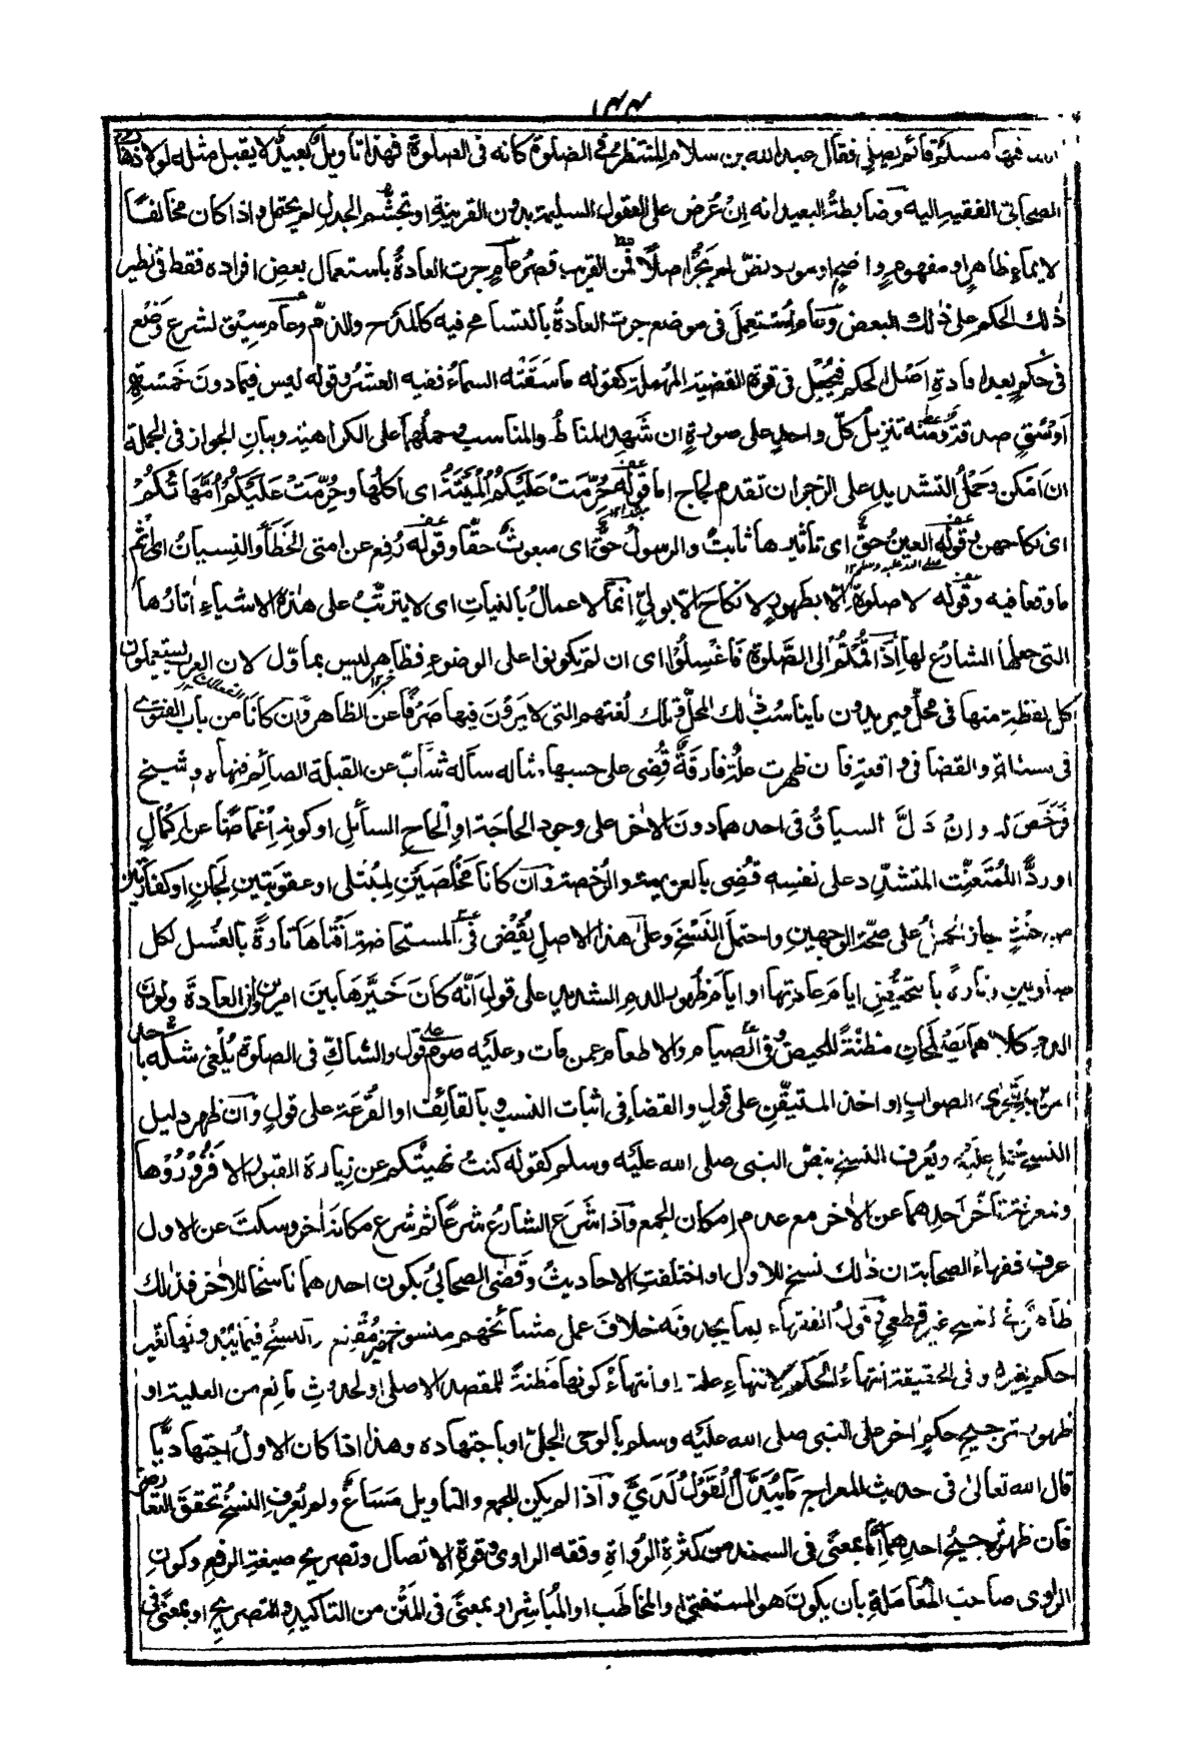 ١٣٣
الله فيها مسلم قائم يصلي فقال عبد الله بن سلام المنتظر في الصلوة كانه في الصلوة فهذا تأويل بعيد لا يقبل مثله لولا ذهاب
الصحابي الفقيه اليه وضابطة البعيد انه ان عُرض على العقول السليمة بدون القرينة او تجشم الجدل لم يحتمل واذا كان مخالفًا
لايماء ظاهر او مفهوم واضح او مورد نص لم يجز اصلًا فمن القريب قصر عام جرت العادة باستعمال بعض افراده فقط في نظير
ذلك الحكم على ذلك البعض وعام استعمل في موضع جرت العادة بالتسامح فيه كالمدح والذم وعام سيق لشرع وضع
في حكم بعد افادة اصل الحكم فيجعل في قوة القضية المهملة كقوله ما سقته السماء ففيه العشر وقوله ليس فيما دون خمسة
اوسق صدقة ومنه تنزيل كل واحد على صورة ان شهد المناط والمناسب وحملهما على الكراهية وبيان الجواز في الجملة
ان امكن وحمل التشديد على الزجر ان تقدم لجاج اما قوله حُرِّمَتْ عَلَيْكُمُ الْمَيْتَةُ اى اكلها وحُرِّمَتْ عَلَيْكُمْ اُمَّهَاتُكُمْ
اى نكاحهن وقوله العين حق اى تأثيرها ثابت والرسول حق اى مبعوث حقًا وقوله رفع عن امتى الخطأ والنسيان اى اثم
ما وقعا فيه وقوله لا صلوة الا بطهور لا نكاح الا بولي انما الاعمال بالنيات اى لا يترتب على هذه الاشياء اٰثارها
التى جعلها الشارع لها اِذَا قُمْتُمْ اِلَى الصَّلٰوةِ فَاغْسِلُوْا اى ان لم تكونوا على الوضوء فظاهر ليس بماوّل لان العرب يستعملون
كل لفظة منها في محل ويريدون ما يناسب ذلك المحل فتلك لغتهم التى لا يرون فيها صرفًا عن الظاهر وان كانا من باب الفتوى
في مسئلة والقضاء في واقعة فان ظهرت علة فارقة قضى على حسبها مثاله سأله شاب عن القبلة للصائم فنهاه وشيخ
فرخص له وان دل السياق في احدهما دون الاٰخر على وجود الحاجة او الحاح السائل او كونه اغماضًا عن اكمال
او ردًّا للمتعنت المتشدد على نفسه قضى بالعزيمة والرخصة وان كانا مخلصين لمبتلى او عقوبتين لجان او كفارتين
من حنث جاز الحمل على صحة الوجهين واحتمل النسخ وعلى هذا الاصل يقضى في المستحاضة افتاها تارة بالغسل لكل
صلوتين وتارة بالتحيض ايام عادتها او ايام ظهور الدم الشديد على قول انه كان خيّرها بين امرين وان العادة ولون
الدم كلاهما يصلحان مظنة للحيض وفي الصيام والاطعام عمن مات وعليه صوم على قول والشاك في الصلوة يلغى شكه باحد
امرين بتحرى الصواب او اخذ المتيقن على قول والقضاء في اثبات النسب بالقائف او القرعة على قول وان ظهر دليل
النسخ حمل عليه ويعرف النسخ بنص النبى صلى الله عليه وسلم كقوله كنت نهيتكم عن زيارة القبور الا فزوروها
وبمعرفة تأخر احدهما عن الاٰخر مع عدم امكان الجمع واذا شرع الشارع شرعًا ثم شرع مكانه اٰخر وسكت عن الاول
عرف فقهاء الصحابة ان ذلك نسخ للاول او اختلفت الاحاديث وقضى الصحابى بكون احدهما ناسخًا للاٰخر فذلك
ظاهر في النسخ غير قطعى وقول الفقهاء لما يجدونه خلاف عمل مشائخهم منسوخ غير مقنع والنسخ فيما يبدو لنا تغير
حكم بغيره وفي الحقيقة انتهاء الحكم لانتهاء علته او انتهاء كونها مظنة للمقصد الاصلى او لحدوث مانع من العلية او
ظهور ترجيح حكم اخر على النبى صلى الله عليه وسلم بالوحى الجلى او باجتهاده وهذا اذا كان الاول اجتهاديًّا
قال الله تعالى في حديث المعراج مَا يُبَدَّلُ الْقَوْلُ لَدَيَّ واذا لم يكن للجمع والتاويل مساغ ولم يعرف النسخ تحقق التعارض
فان ظهر ترجيح احدهما اما بمعنى في السند من كثرة الرواة وفقه الراوى وقوة الاتصال وتصريح صيغة الرفع وكون
الراوى صاحب المعاملة بان يكون هو المستفتى او المخاطب او المباشر او بمعنى في المتن من التاكيد والتصريح او بمعنى في